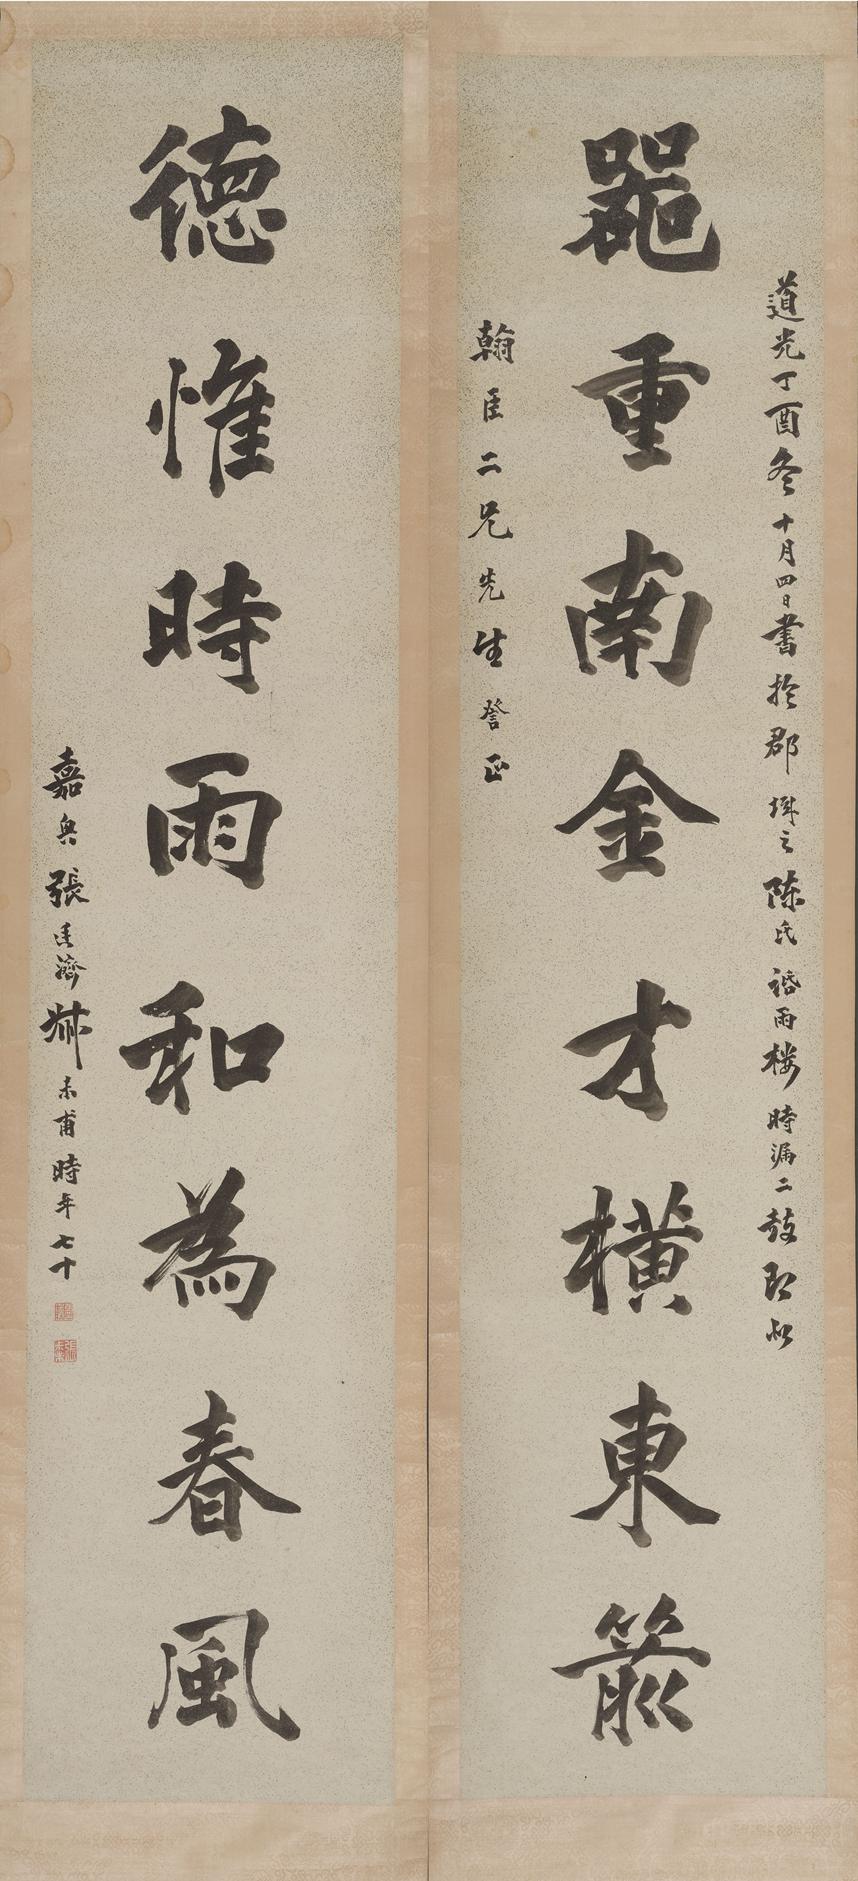 道光丁酉冬十月四日書於郡城之陳氏話雨樓時漏二鼓
器重南金才橫東箭
翰臣二兄先生詧正
德惟時雨和為春風
嘉興張廷濟叔未甫時年七十